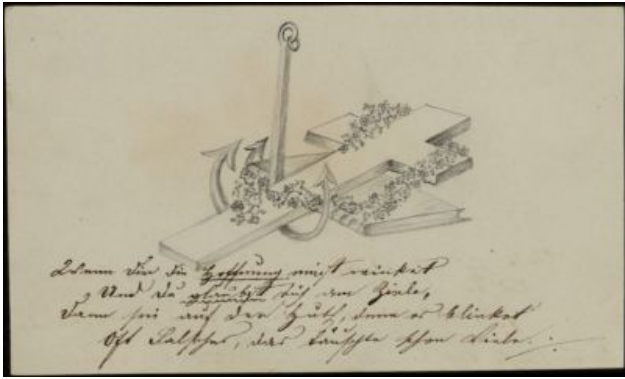 Wenn Dir die Hoffnung winket
Und du glaubst dich am Ziele,
Dann sei auf der Hut, denn es blinket
Oft Falsches, das täuschte schon Viele.